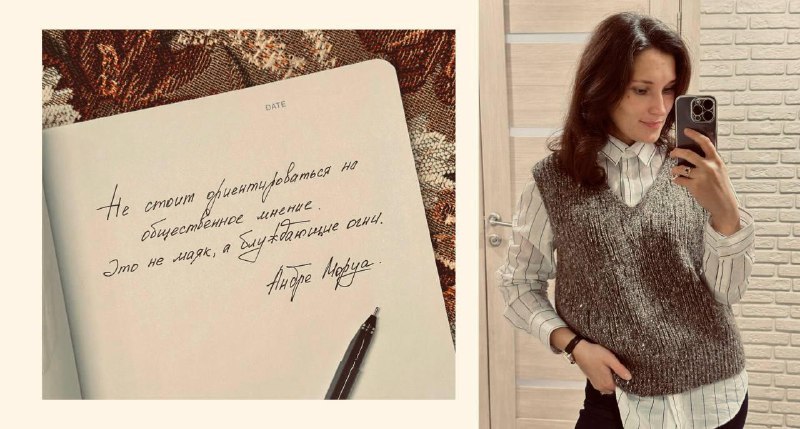 DATE
Не стоит ориентироваться на
общественное мнение.
Это не маяк, а блуждающие огни.
Андре Моруа.